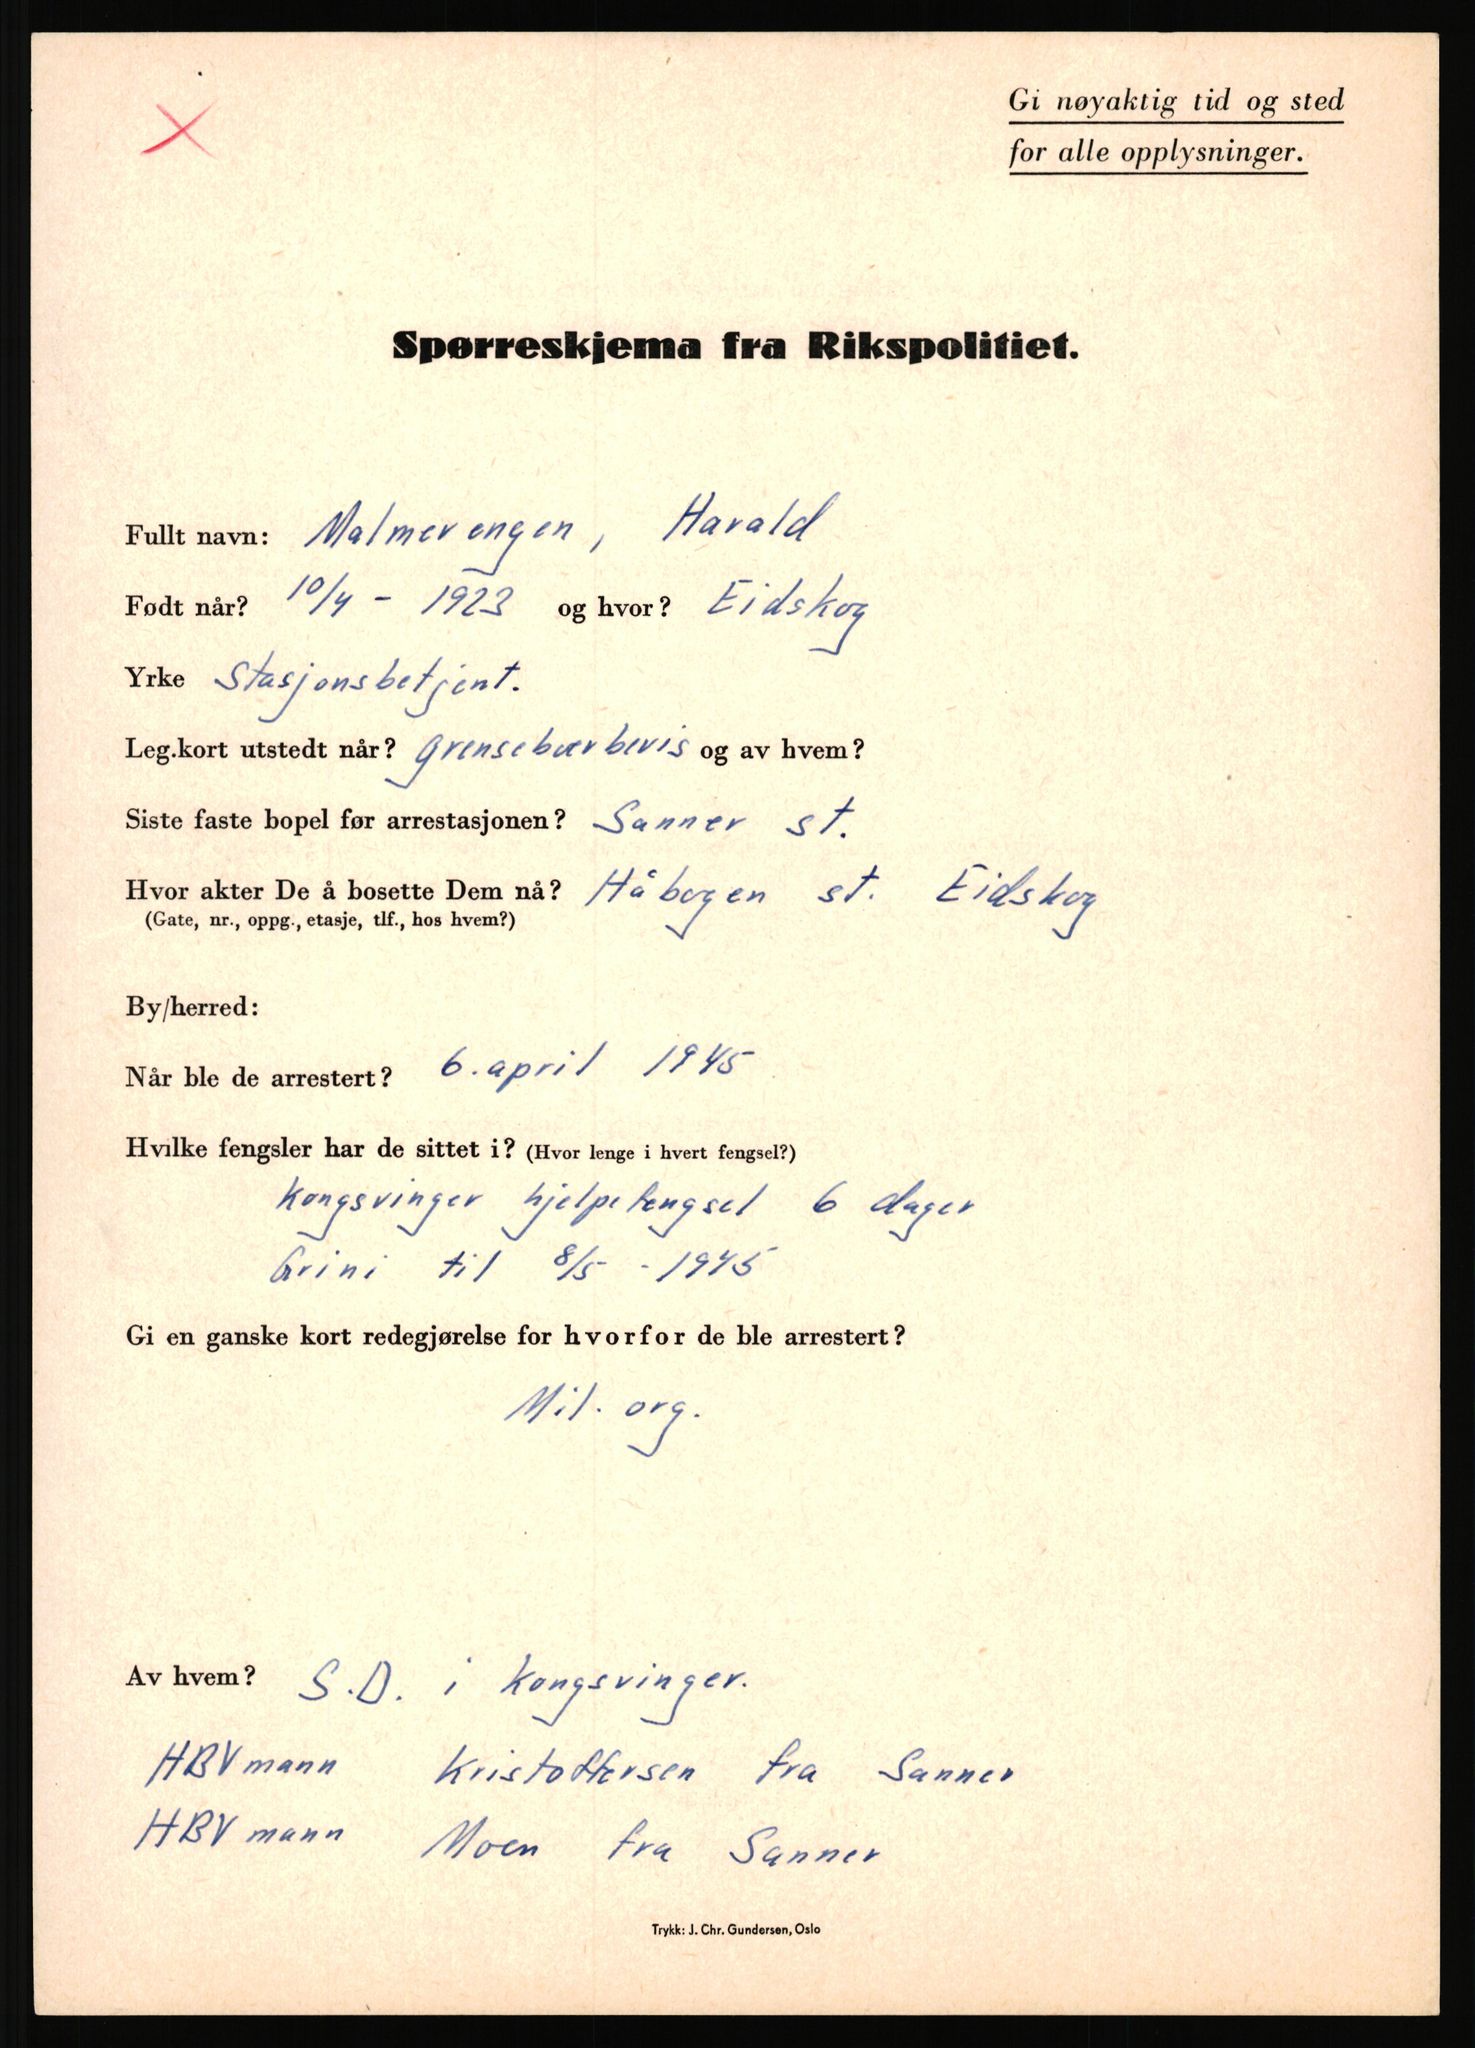 Gi nøyaktig tid og sted
for alle opplysninger.
Spørreskjema fra Rikspolitiet.
Fullt navn: Malmerengen, Harald
Født når? 10/4 - 1923 og hvor? Eidskog
Yrke Stasjonsbetjent.
Leg.kort utstedt når? Grenseboerbevis og av hvem?
Siste faste bopel før arrestasjonen? Sanner st.
Hvor akter De å bosette Dem nå? Håbogen st. Eidskog
(Gate, nr., oppg., etasje, tlf., hos hvem?)
By/herred:
Når ble de arrestert? 6. april 1945
Hvilke fengsler har de sittet i? (Hvor lenge i hvert fengsel?)
Kongsvinger hjelpefengsel 6 dager
Grini til 8/5 - 1945
Gi en ganske kort redegjørelse for hvorfor de ble arrestert?
Mil. org.
Av hvem? S.D. i Kongsvinger.
HBV mann Kristoffersen fra Sanner
HBV mann Moen fra Sanner
Trykk: J. Chr. Gundersen, Oslo